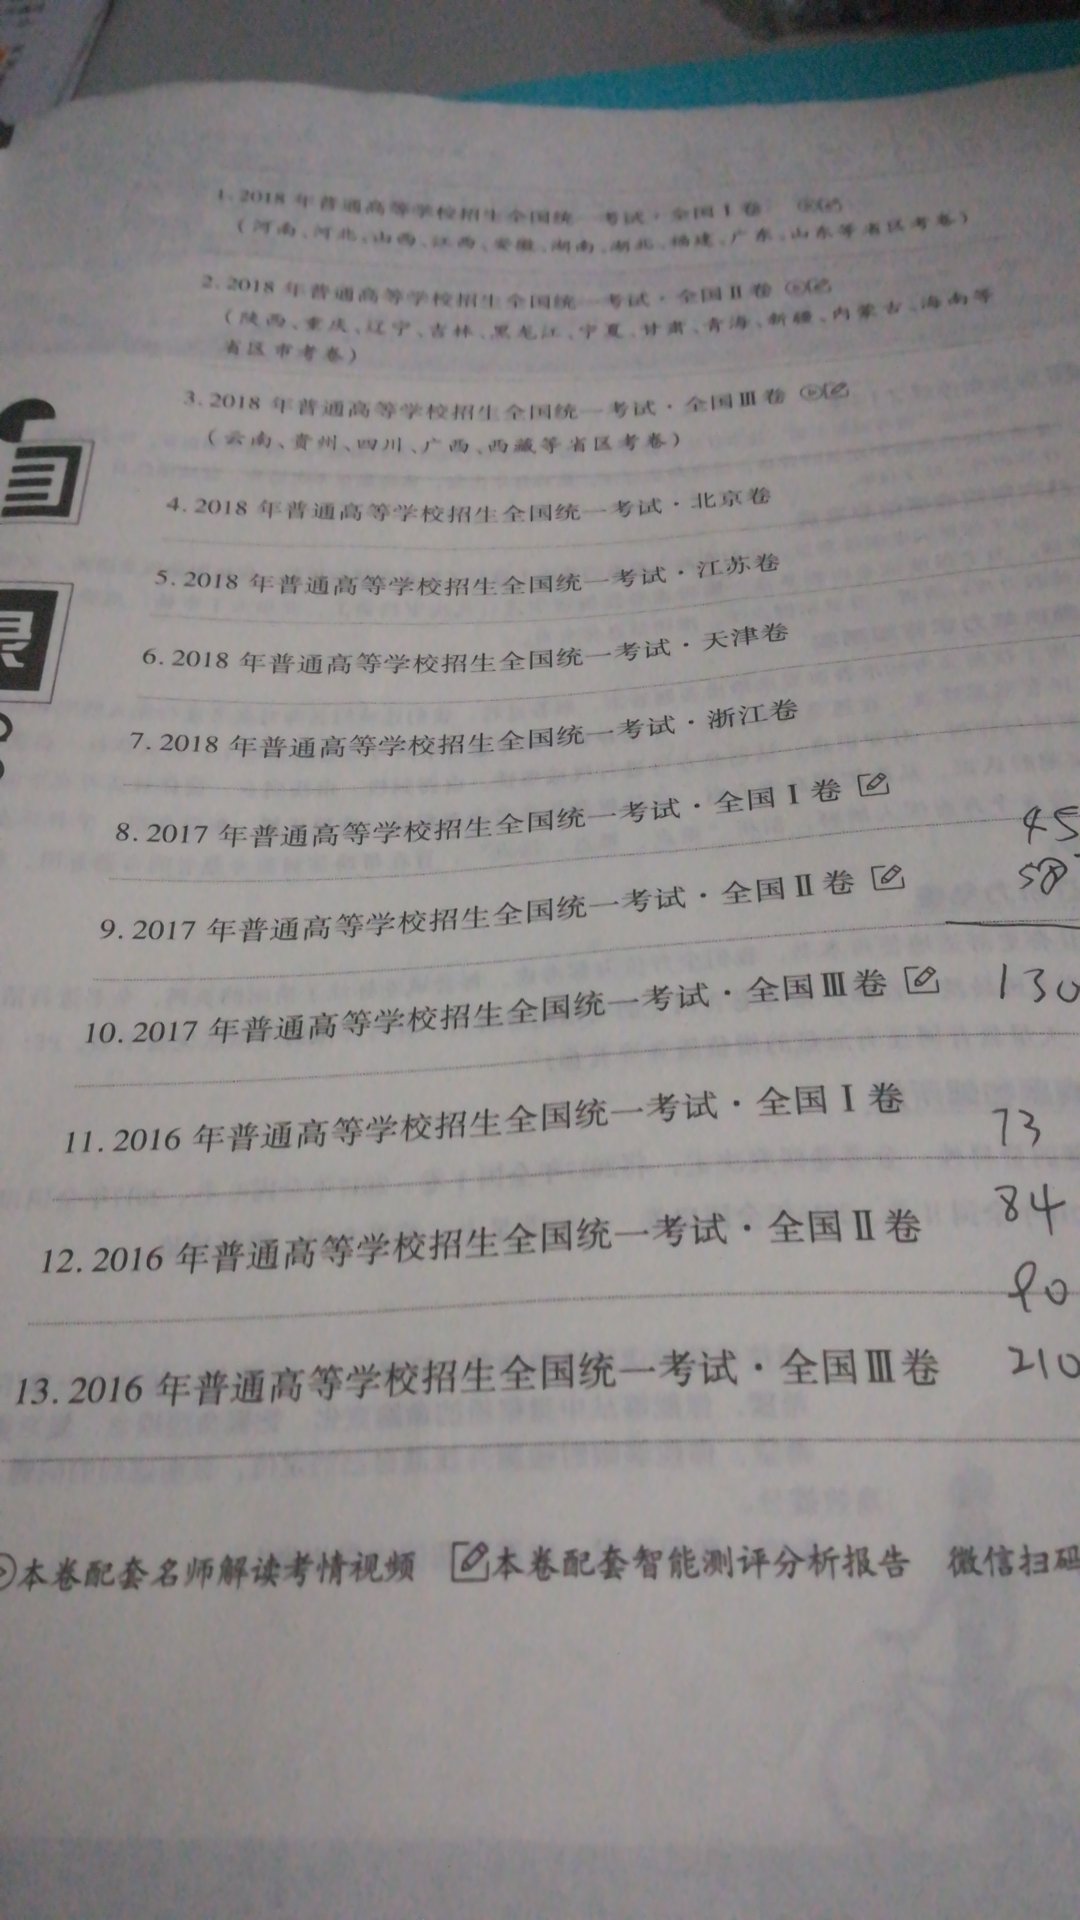 1. 2018 年普通高等学校招生全国统一考试·全国Ⅰ卷
(河南、河北、山西、江西、安徽、湖南、湖北、福建、广东、山东等省区考卷)
2. 2018 年普通高等学校招生全国统一考试·全国Ⅱ卷
(陕西、重庆、辽宁、吉林、黑龙江、宁夏、甘肃、青海、新疆、内蒙古、海南等
省区市考卷)
3. 2018 年普通高等学校招生全国统一考试·全国Ⅲ卷
(云南、贵州、四川、广西、西藏等省区考卷)
4. 2018 年普通高等学校招生全国统一考试·北京卷
5. 2018 年普通高等学校招生全国统一考试·江苏卷
6. 2018 年普通高等学校招生全国统一考试·天津卷
7. 2018 年普通高等学校招生全国统一考试·浙江卷
8. 2017 年普通高等学校招生全国统一考试·全国Ⅰ卷
45
9. 2017 年普通高等学校招生全国统一考试·全国Ⅱ卷
58
10. 2017 年普通高等学校招生全国统一考试·全国Ⅲ卷
130
11. 2016 年普通高等学校招生全国统一考试·全国Ⅰ卷
73
12. 2016 年普通高等学校招生全国统一考试·全国Ⅱ卷
84
90
13. 2016 年普通高等学校招生全国统一考试·全国Ⅲ卷
210
本卷配套名师解读考情视频 本卷配套智能测评分析报告 微信扫码